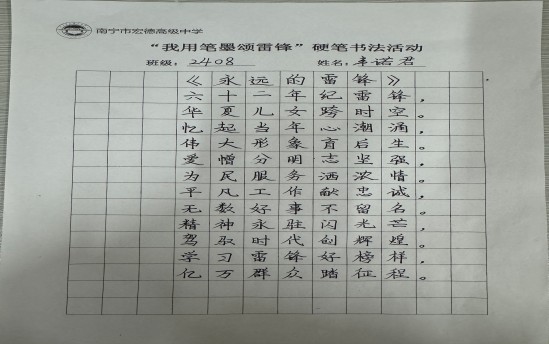 南宁市宏德高级中学
“我用笔墨颂雷锋”硬笔书法活动
班级：2408 姓名：韦诺君
《永远的雷锋》
六十二年纪雷锋，
华夏儿女跨时空。
忆起当年心潮涌，
伟大形象育后生。
爱憎分明志坚强，
为民服务洒浓情。
平凡工作献忠诚，
无数好事不留名。
精神永驻闪光芒，
驾驭时代创辉煌。
学习雷锋好榜样，
亿万群众踏征程。